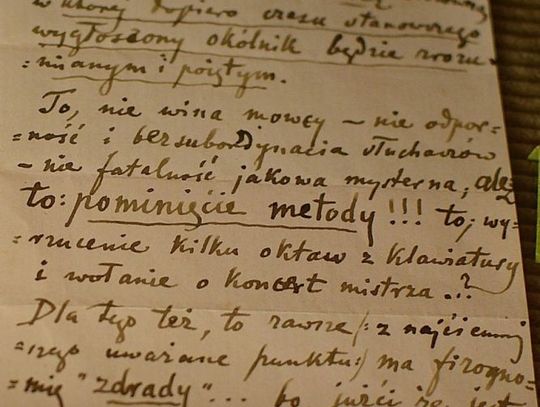 w której dopiero czasu stanowczego
wygłoszony okólnik będzie zrozu-
=mianym i pojętym.
To, nie wina mowcy – nie odpor=
=ność i bezsubordynacia słuchaczów
– nie fatalność jakowa mysterna; ależ
to: pominięcie metody!!! to; wy-
=rzucenie kilku oktaw z klawiatury
i wołanie o koncert mistrza...?
Dla tego też, to zawsze /: z najściemnij
=szego uważane punktu:/ ma fizogno=
=mię "zdrady"... bo juźci że jest